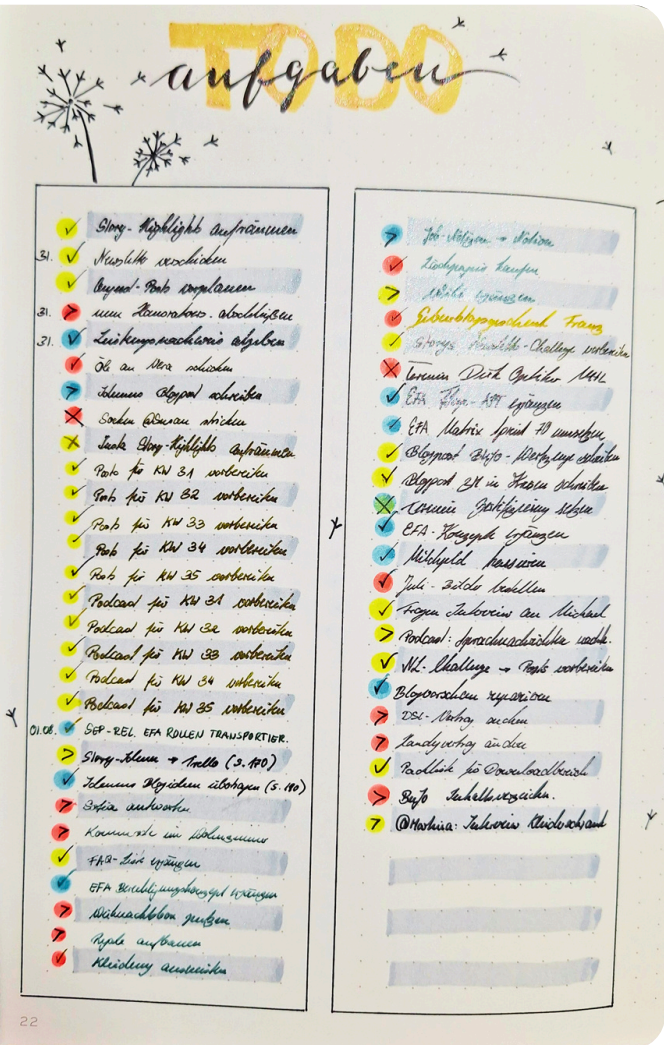 TODO
aufgaben
Story-Highlights aufräumen
31. Newsletter verschicken
Posts vorplanen
31.
31. Leistungsnachweis abgeben
Öle an Vera schicken
Blogpost schreiben
Socken @Susan stricken
Insta Story-Highlights aufräumen
Posts für KW 31 vorbereiten
Posts für KW 32 vorbereiten
Posts für KW 33 vorbereiten
Posts für KW 34 vorbereiten
Posts für KW 35 vorbereiten
Podcast für KW 31 vorbereiten
Podcast für KW 32 vorbereiten
Podcast für KW 33 vorbereiten
Podcast für KW 34 vorbereiten
Podcast für KW 35 vorbereiten
01.08. SEP-REL. EFA ROLLEN TRANSPORTIER.
Story-Ideen → Trello (S. 170)
antworten
Kommode im Wohnzimmer
FAQ-Liste ergänzen
EFA Berechtigungskonzept ergänzen
Regale aufbauen
Kleidung ausmisten
Job-Notizen → Notion
kaufen
ergänzen
Geburtstagsgeschenk Franz
Storys Newsletter-Challenge vorbereiten
Termin Dirk Optiker
EFA ergänzen
EFA Matrix Sprint 79 umsetzen
Blogpost BuJo-Werkzeuge schreiben
Blogpost schreiben
Termin Zertifizierung setzen
EFA-Konzept ergänzen
Milchgeld kassieren
Juli-Bilder bestellen
Fragen Interview an Michael
Podcast: Sprachnachrichten
NL-Challenge → Posts vorbereiten
Blogvorschau reparieren
DSL-Vertrag ändern
Handyvertrag ändern
Packliste für Downloadbereich
BuJo Inhaltsverzeichn.
Interview Kleiderschrank
22